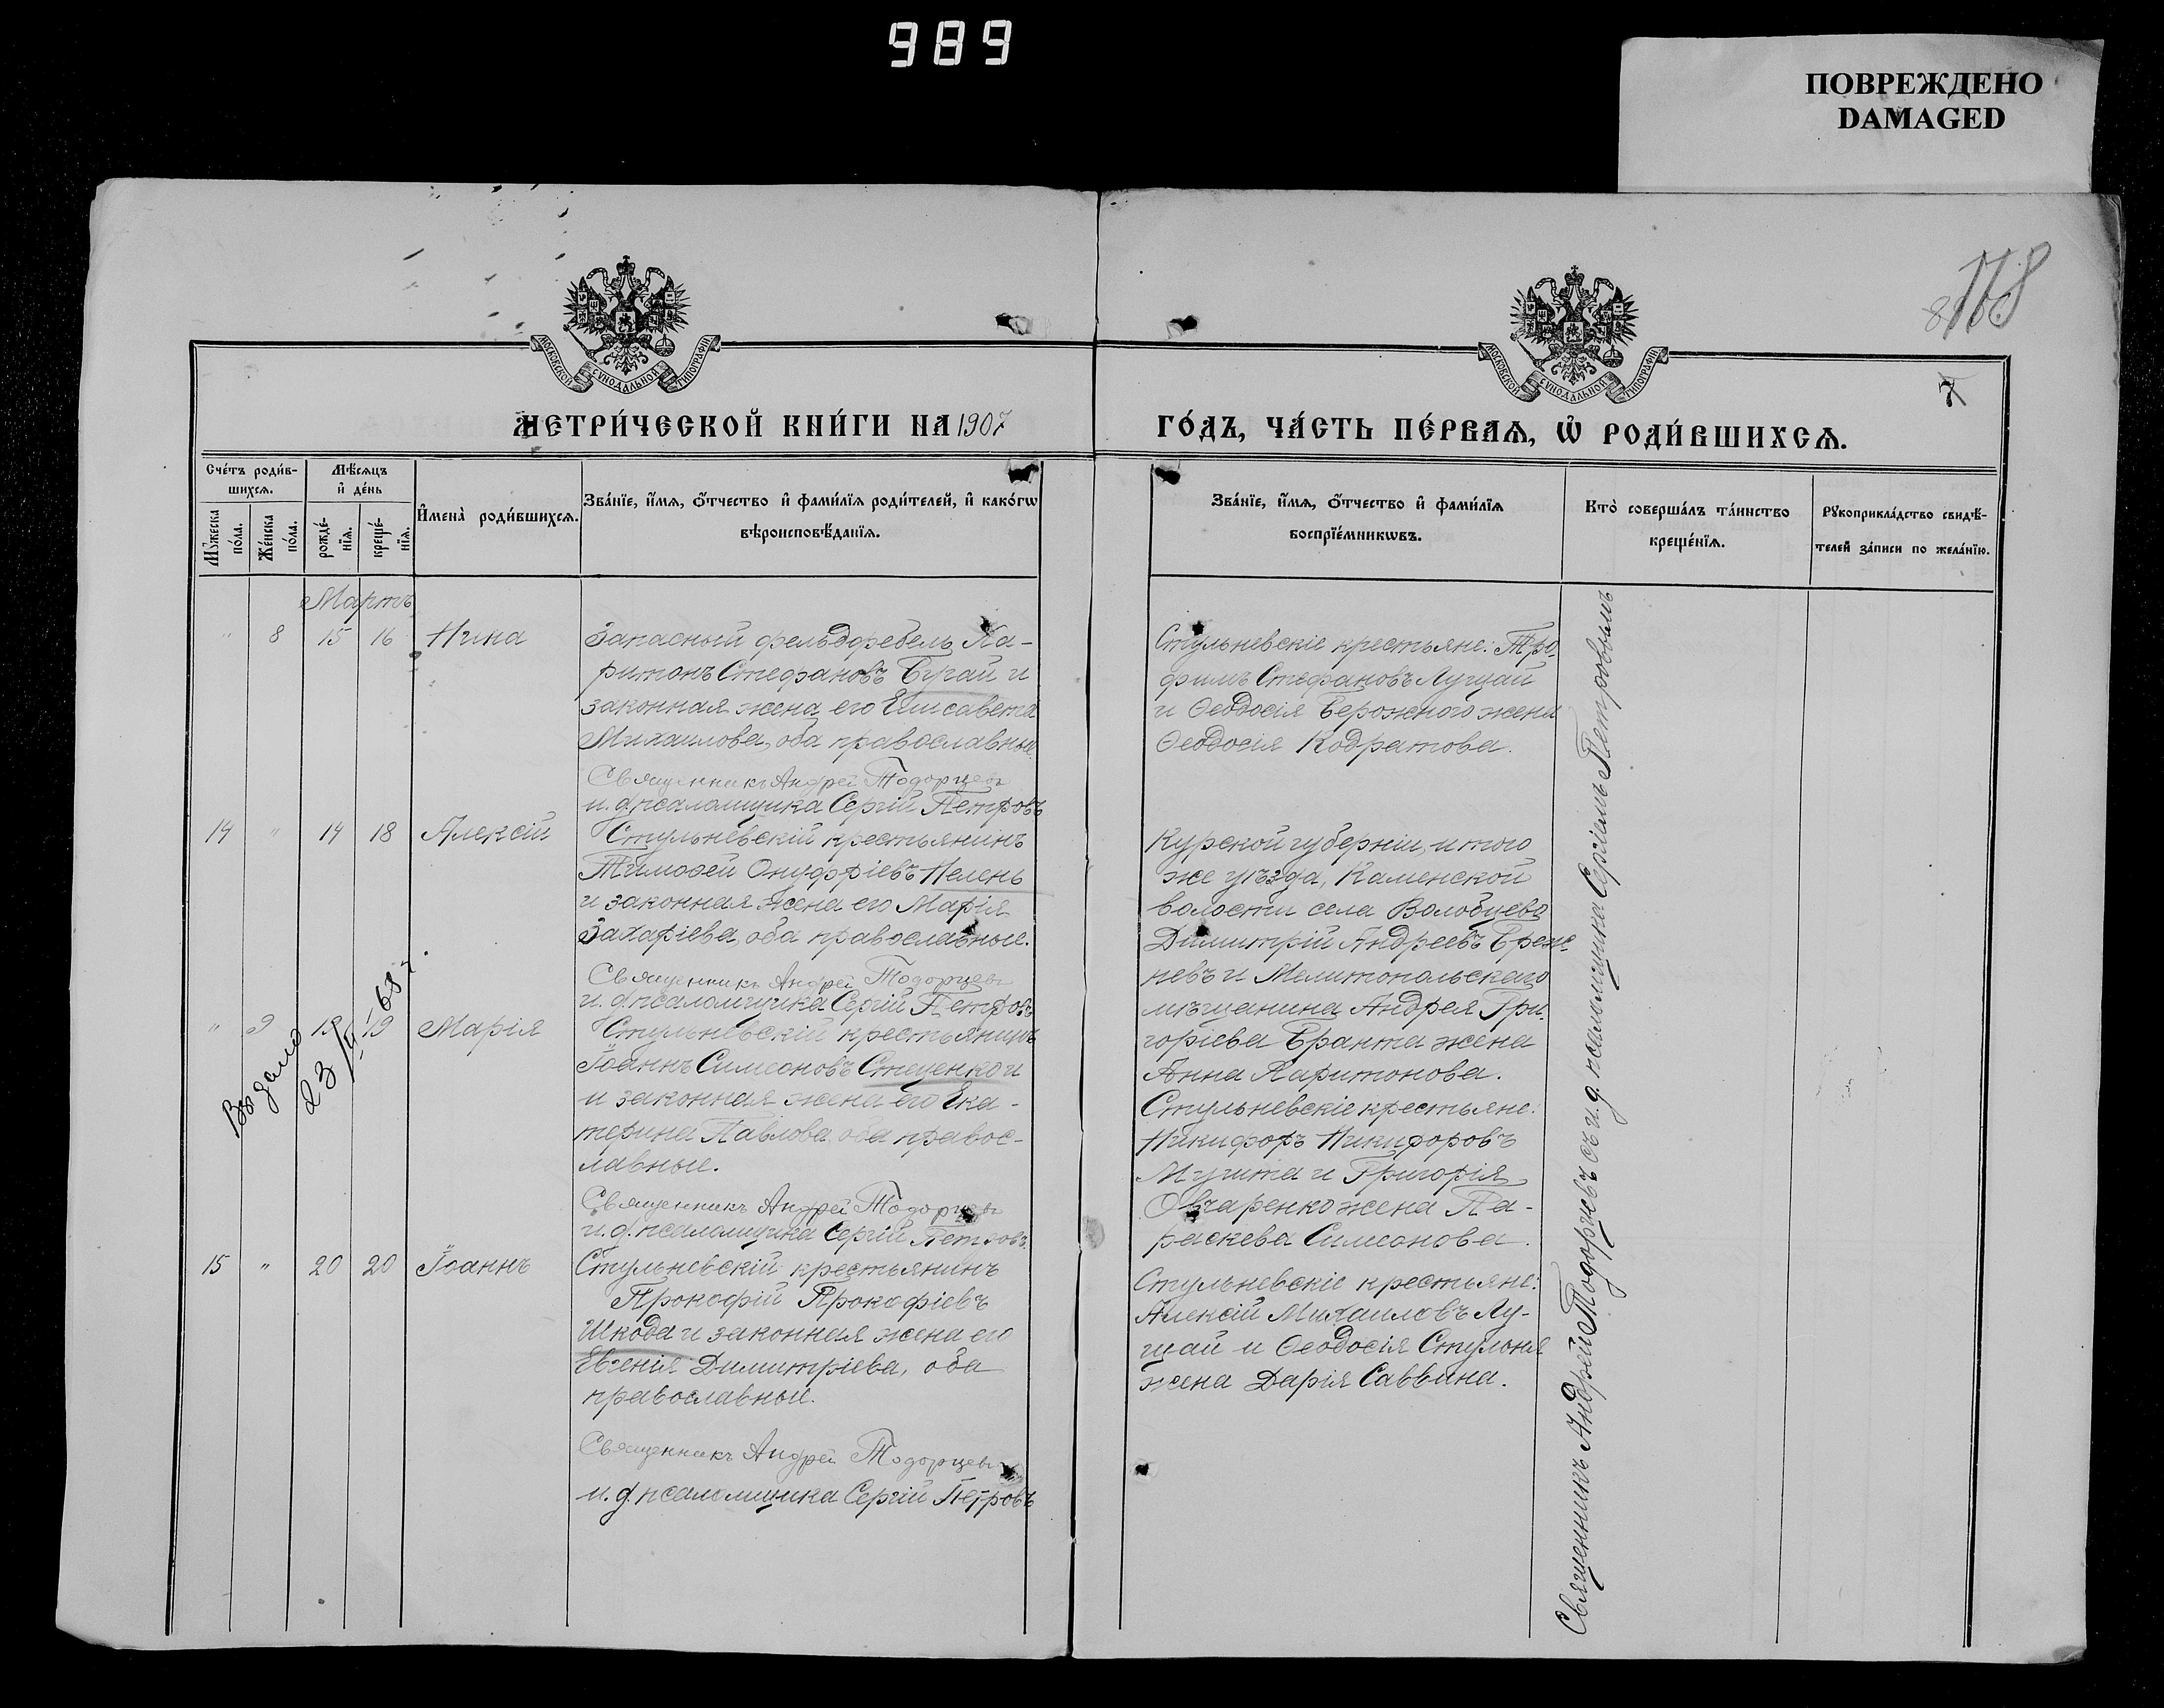 989
ПОВРЕЖДЕНО
DAMAGED
178
7
МОСКОВСКОЙ СѴНОДАЛЬНОЙ ТИПОГРАФІИ
МОСКОВСКОЙ СѴНОДАЛЬНОЙ ТИПОГРАФІИ
МЕТРИ́ЧЕСКОЙ КНИ́ГИ НА 1907
ГО́ДЪ, ЧА́СТЬ ПЕ́РВАѦ, Ѡ РОДИ́ВШИХСѦ.
Сче́тъ роди́в-
шихсѧ.
Мѣ́сѧцъ
и҆ де́нь
Мꙋ́жеска
по́ла.
Же́нска
по́ла.
рожде́-
нїѧ.
креще́-
нїѧ.
И҆мена̀ роди́вшихсѧ.
Зва́нїе, и҆́мѧ, ѻ҆́тчество и҆ фами́лїѧ роди́телей, и҆ како́гѡ
вѣроисповѣ́данїѧ.
Зва́нїе, и҆́мѧ, ѻ҆́тчество и҆ фами́лїѧ
воспрїе́мникѡвъ.
Кто̀ соверша́лъ та́инство
креще́нїѧ.
Рꙋкоприкла́дство свидѣ́-
телей за́писи по жела́нїю.
Мартъ
" 8 15 16 Нина
Запасный фельдфебель Ха-
ритонъ Стефановъ Бугай и
законная жена его Елисавета
Михаилова, оба православные.
Священникъ Андрей Тодорцевъ
и. д. псаломщика Сергій Петровъ
Стульневскіе крестьяне: Тро-
фимъ Стефановъ Лущай
и Ѳеодосія Бережного жена
Ѳеодосія Кодратова.
14 " 14 18 Алексій
Стульневскій крестьянинъ
Тимоѳей Онуфріевъ Пелень
и законная жена его Марія
Захаріева, оба православные.
Священникъ Андрей Тодорцевъ
и. д. псаломщика Сергій Петровъ
Курской губерніи, и того
же уѣзда, Каменской
волости села Волобуева
Димитрій Андреевъ
и Мелитопольскаго
мѣщанина Андрея Гри-
горіева Бранта жена
Анна Харитонова.
" 9 19 19 Марія
Выдано
23/II-68 г.
Стульневскій крестьянинъ
Іоаннъ Симеоновъ Стеценко и
и законная жена его Ека-
терина Павлова, оба правос-
лавные.
Священникъ Андрей Тодорцевъ
и. д. псаломщика Сергій Петровъ
Стульневскіе крестьяне:
Никифоръ Никифоровъ
и Григорія
Овчаренко жена Па-
раскева Симеонова.
15 " 20 20 Іоаннъ
Стульневскій крестьянинъ
Прокофій Прокофіевъ
Шкода и законная жена его
Евгенія Димитріева, оба
православные.
Священникъ Андрей Тодорцевъ
и. д. псаломщика Сергій Петровъ
Стульневскіе крестьяне:
Алексій Михаиловъ Лу-
щай и Ѳеодосія Стульня
жена Дарія Саввина.
Священникъ Андрей Тодорцевъ съ и. д. псаломщика Сергіемъ Петровымъ